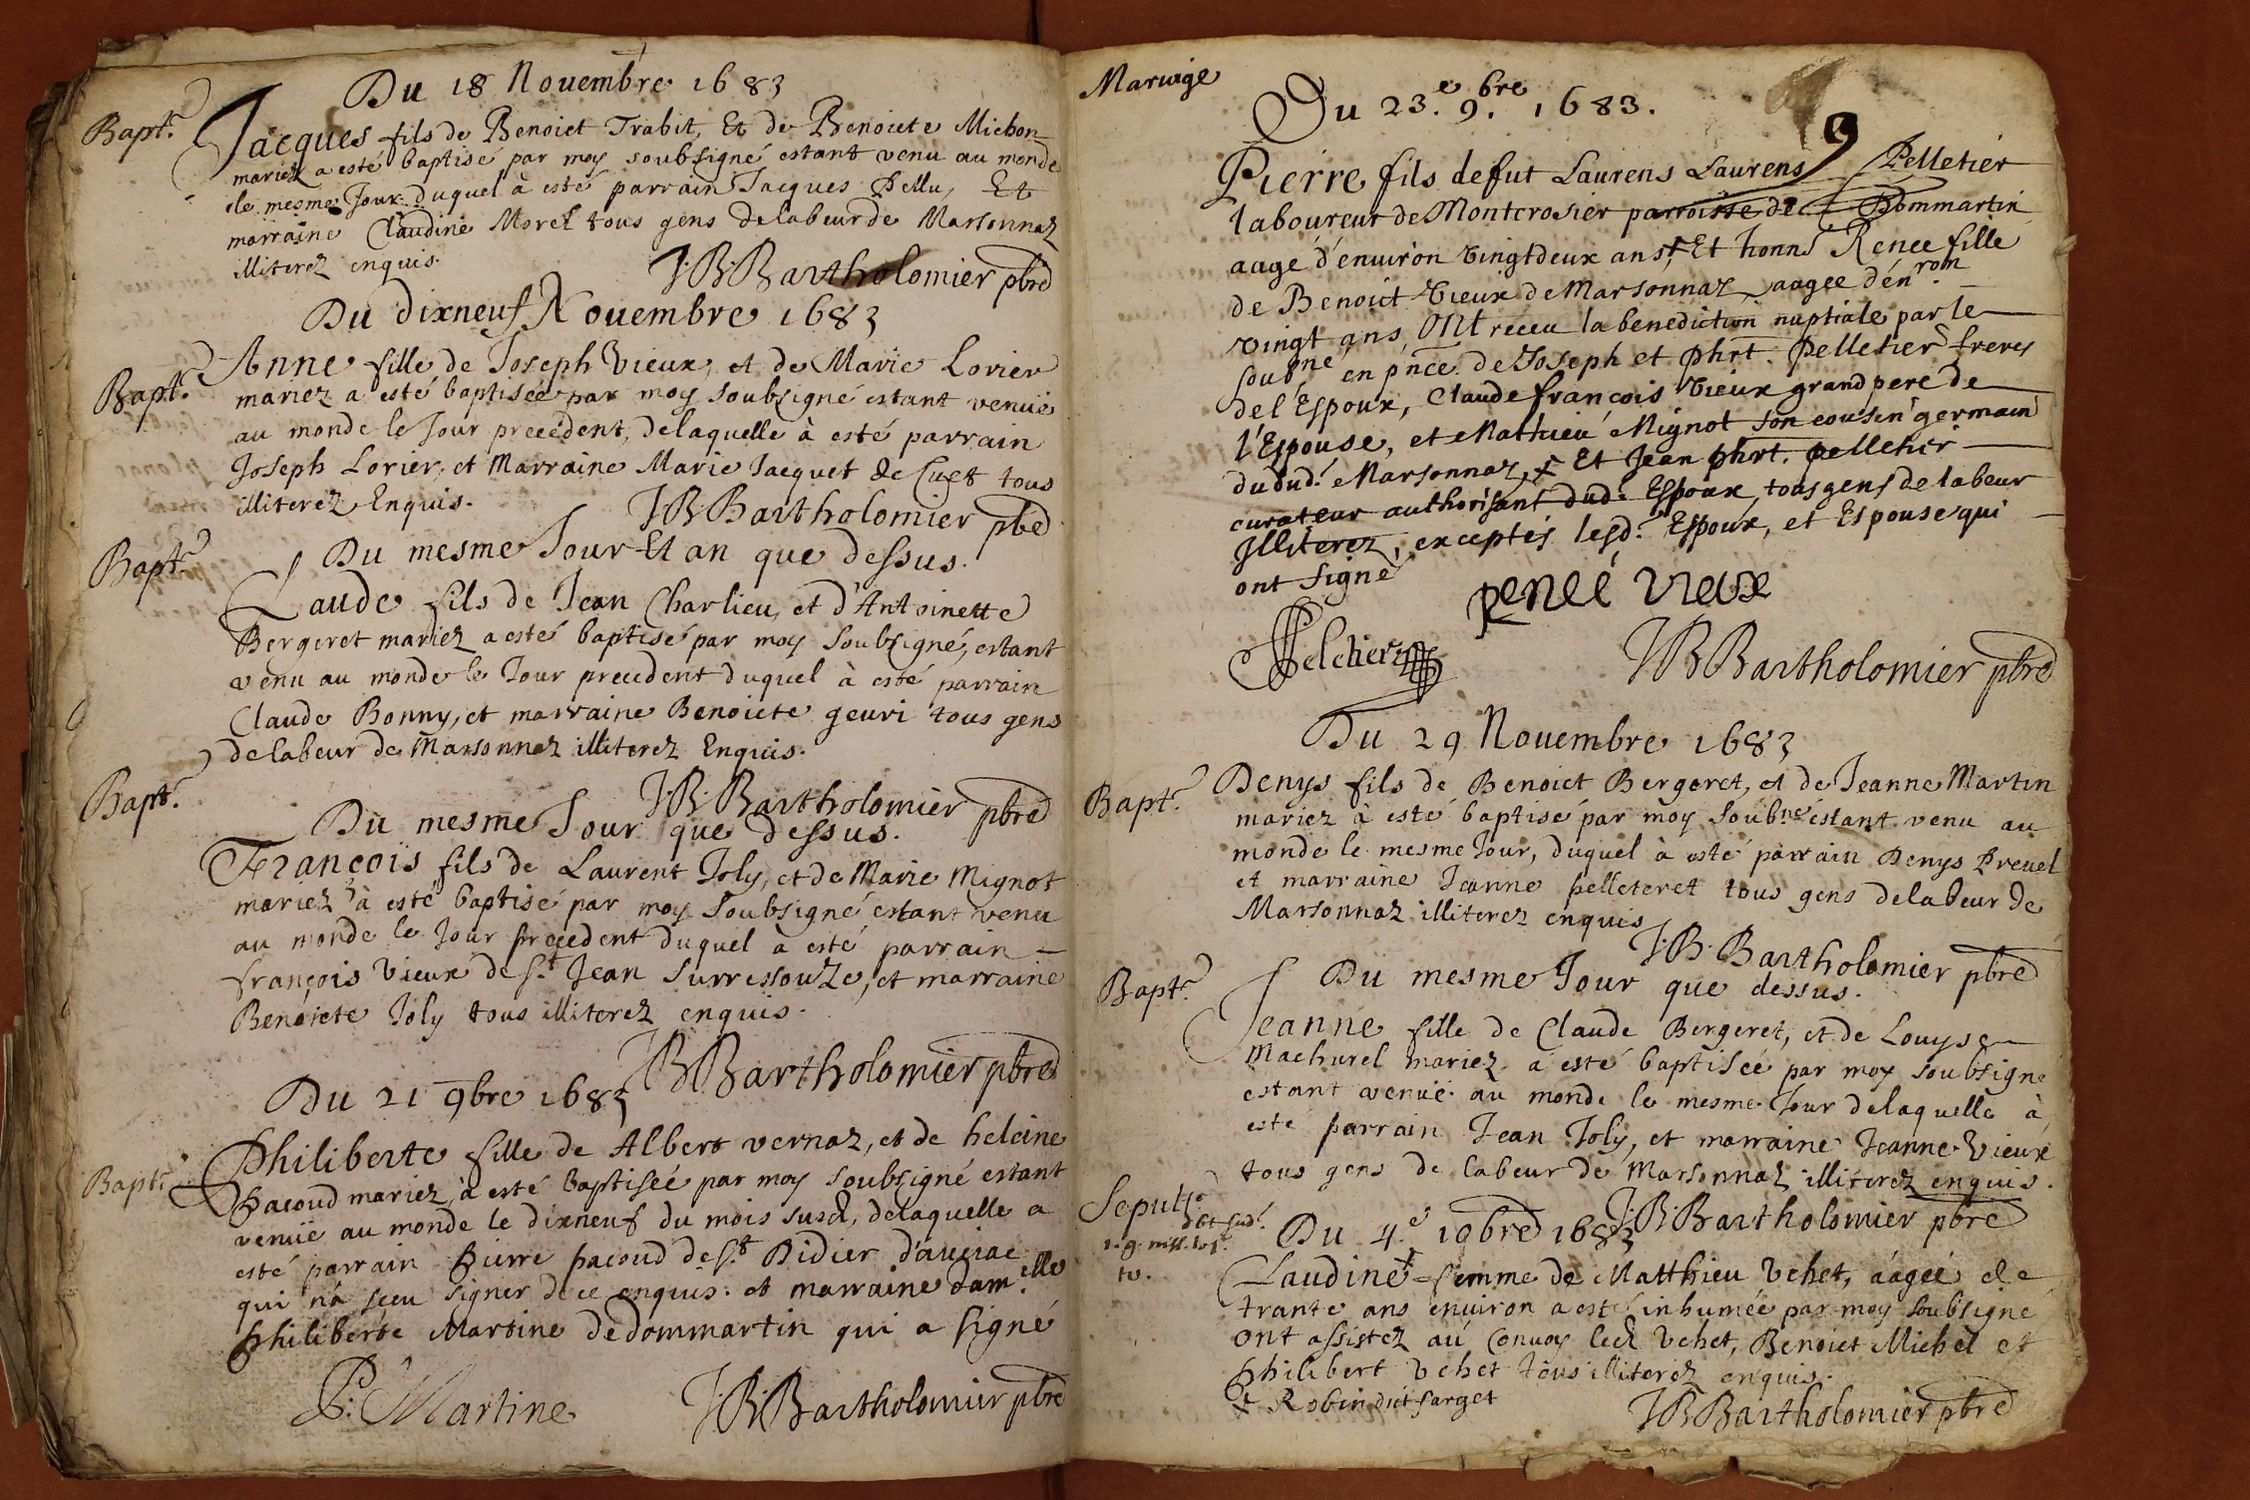 Du 18 Nouembre 1683
Bapt.
Jacques fils de Benoict Trabit, Et de Benoiete Michon
mariez a esté baptisé par moy soubsigné estant venu au monde
le mesme Jour duquel à esté parrain Jacques Pellu, Et
marraine Claudine Morel tous gens de labeur de Marsonnaz
illiterez enquis.
J.B. Bartholomier pbre
Du dixneuf Nouembre 1683
Bapt.
Anne fille de Joseph Vieux, et de Marie Lorier
mariez a esté baptisée par moy soubsigné estant venuë
au monde le Jour precedent, de laquelle à esté parrain
Joseph Lorier, et Marraine Marie Jacquet de Cuet tous
illiterez Enquis.
JB Bartholomier pbre
Bapt.
Du mesme Jour Et an que dessus.
Claude fils de Jean Charlieu, et d'Antoinette
Bergeret mariez a esté baptisé par moy soubsigné, estant
venu au monde le Jour precedent duquel à esté parrain
Claude Bonny, et marraine Benoiete geuri tous gens
de labeur de Marsonnaz illiterez Enquis.
J.B. Bartholomier pbre
Bapt.
Du mesme Jour que dessus.
François fils de Laurent Joly, et de Marie Mignot
mariez à esté baptisé par moy soubsigné estant venu
au monde le Jour precedent duquel à esté parrain
françois Vieux de St. Jean surressouze, et marraine
Benoiete Joly tous illiterez enquis.
JB Bartholomier pbre
Du 21 9bre 1683
Bapt.
Philiberte fille de Albert vernaz, et de heleine
pacoud mariez, à esté baptisée par moy soubsigné estant
venuë au monde le dixneuf du mois susd., delaquelle a
esté parrain Pierre pacoud de St. Didier d'auciac
qui n'à sceu signer de ce enquis. et marraine dam.elle
philiberte Martine de dommartin qui a signé
P. Martine
J.B. Bartholomier pbre
Mariage
Du 23.e 9.bre 1683.
9
Pierre fils de fut Laurens Laurens Pelletier
laboureur de Montcrosier parroisse de Dommartin
aagé d'enuiron vingtdeux ans, Et honne. Renee fille
de Benoict Vieux de Marsonnaz, aagee d'en.ron
vingt ans, Ont receu la benediction nuptiale par le
soubne. en pnce. de Joseph et phrt. Pelletier freres
de l'Espoux, Claude françois Vieux grand pere de
l'Espouse, et Mathieu Mignot son cousin germain
dudud. Marsonnaz, + Et Jean phrt. pelletier
curateur authorisant dud. Espoux, tous gens de labeur
Jlliterez, exceptés lesd. Espoux, et Espouse qui
ont signé
Renee vieux
Peletier
JB Bartholomier pbre
Du 29 Nouembre 1683
Bapt.
Denys fils de Benoict Bergeret, et de Jeanne Martin
mariez à esté baptisé par moy soubne. estant venu au
monde le mesme Jour, duquel à esté parrain Denys Preuel
et marraine Jeanne pelleteret tous gens de labeur de
Marsonnaz illiterez enquis
J.B. Bartholomier pbre
Bapt.
Du mesme Jour que dessus.
Jeanne fille de Claude Bergeret, et de Louyse
Machurel mariez à esté baptisée par moy soubsigné
estant venuë au monde le mesme Jour delaquelle à
esté parrain Jean Joly, et marraine Jeanne Vieux
tous gens de labeur de Marsonnaz illiterez enquis.
J.B. Bartholomier pbre
Sepult.
Du 4.e 10bre 1683
Claudine + femme de Matthieu Vehet, aagée de
trante ans enuiron a esté inhumée par moy soubsigné
ont assistez au Conuoy led. Vehet, Benoict Michel et
philibert Vehet tous illiterez enquis.
+ Robin dict farget
JB Bartholomier pbre